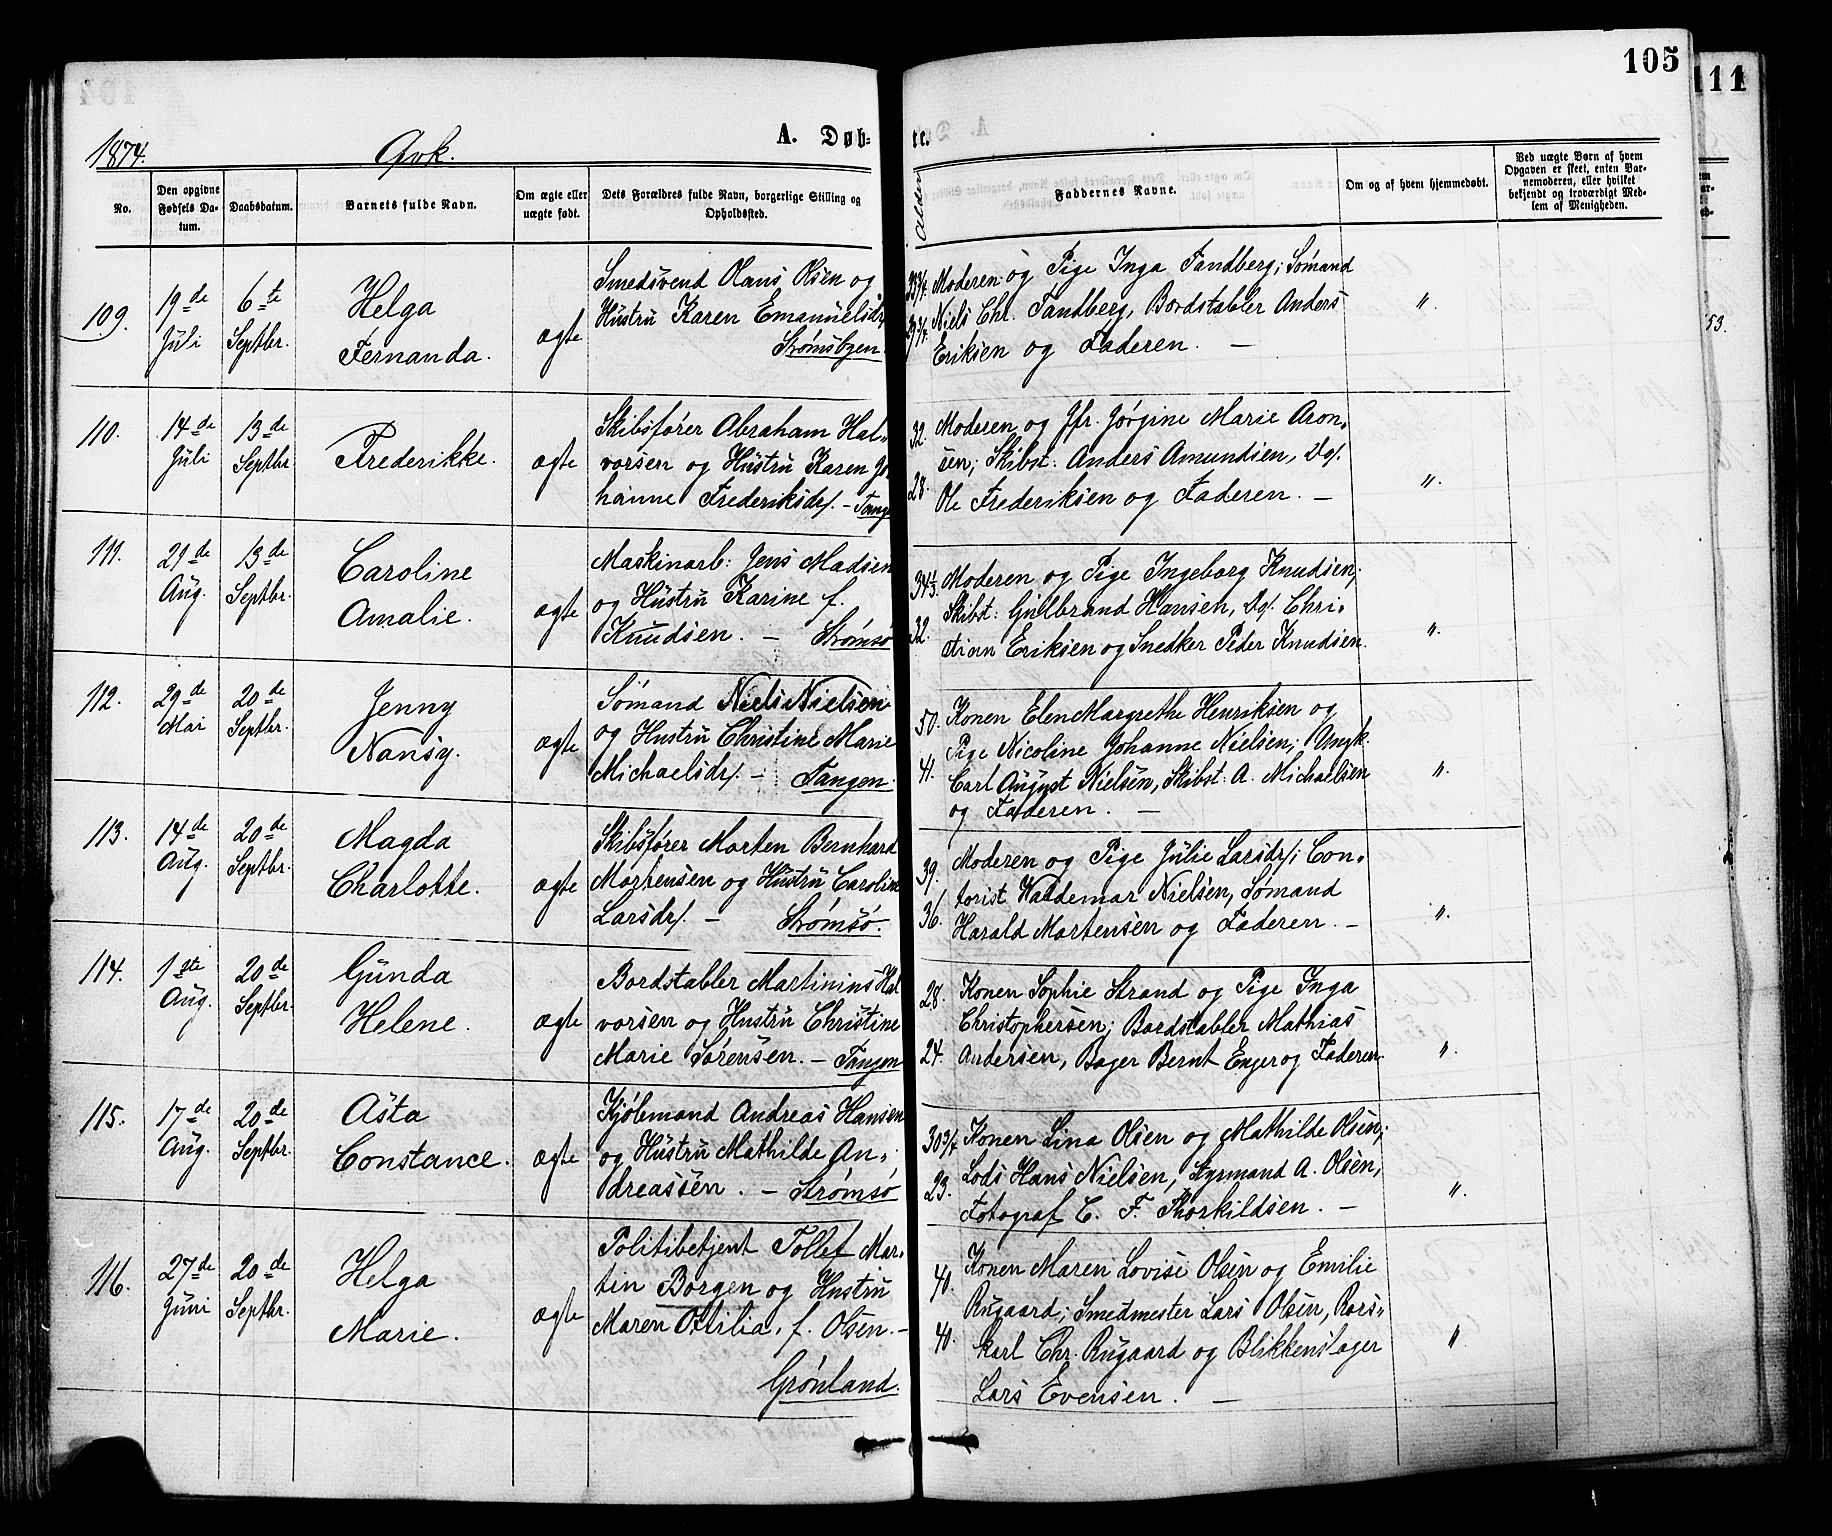 105
111
1874.
Qvk.
A. Døb-
te.
No.
Den opgivne Fødsels Datum.
Daabsdatum.
Barnets fulde Navn.
Om ægte eller uægte født.
Dets Forældres fulde Navn, borgerlige Stilling og Opholdssted.
Alder
Faddernes Navne.
Om og af hvem hjemmedøbt.
Ved uægte Børn af hvem Opgaven er skeet, enten Barnemoderen, eller hvilket bekjendt og troværdigt Medlem af Menigheden.
109.
19de Juli
6te Septbr.
Helga
Fernanda.
ægte
Smedsvend Hans Olsen og
Hustru Karen Emanuelsdr/.
Strømsbyen.
Moderen og Pige Inga Tandberg; Sømand
Niels Chr. Tandberg, Bordstabler Anders
Eriksen og Faderen. —
"
110.
14de Juli
13de Septbr
Frederikke.
ægte
Skibsfører Abraham Hal-
vorsen og Hustru Karen Jo-
hanne Frederiksdr/. - Tange
32.
28.
Moderen og Jfr. Jørgine Marie Aron-
sen; Skibst: Anders Amundsen, Do/.
Ole Frederiksen og Faderen. —
"
111.
21de Aug.
13de Septbr.
Caroline
Amalie.
ægte
Maskinarb: Jens Madsen
og Hustru Karine f.
Knudsen. — Strømsø
32.
Moderen og Pige Ingeborg Knudsen;
Skibst: Gulbrand Hansen, Do/. Chri-
stian Eriksen og Snedker Peder Knudsen.
"
112.
29de Mai
20de Septbr.
Jenny
Nansy.
ægte
Sømand Niels Nielsen
og Hustru Christine Marie
Michaelsdr/. — Tangen.
50.
41.
Konen Elen Margrethe Henriksen og
Pige Nicoline Johanne Nielsen; Ungk.
Carl August Nielsen, Skibst: A. Michaelsen
og Faderen. —
"
113.
14de Aug.
20de Septbr.
Magda
Charlotte.
ægte
Skibsfører Morten Bernhard
Mortensen og Hustru Caroline
Larsdr/. — Strømsø.
39.
36.
Moderen og Pige Julie Larsdr/; Con-
torist Waldemar Nielsen, Sømand
Harald Mortensen og Faderen. —
"
114.
1ste Aug.
20de Septbr.
Gunda
Helene.
ægte
Bordstabler Martinius Hal
vorsen og Hustru Christine
Marie Sørensen. — Tangen
28.
24.
Konen Sophie Strand og Pige Inga
Christophersen; Bordstabler Mathias
Andersen, Bager Bernt Enger og Faderen.
"
115.
17de Aug.
20de Septbr.
Asta
Constance.
ægte
Kjølemand Andreas Hansen
og Hustru Mathilde An-
dreassen. — Strømsø
30 3/4
23.
Konen Lina Olsen og Mathilde Olsen;
Lods Hans Nielsen, Styrmand A. Olsen,
Fotograf C. F. Thorkildsen. —
"
116.
27de Juni
20de Septbr.
Helga
Marie.
ægte
Politibetjent Tollef Mar-
tin Borgen og Hustru
Maren Ottilia, f. Olsen. —
Grønland.
40.
40.
Konen Maren Lovise Olsen og Emilie
Rugaard; Smedmester Lars Olsen, Rors-
karl Chr. Rugaard og Blikkenslager
Lars Evensen. —
"
53.